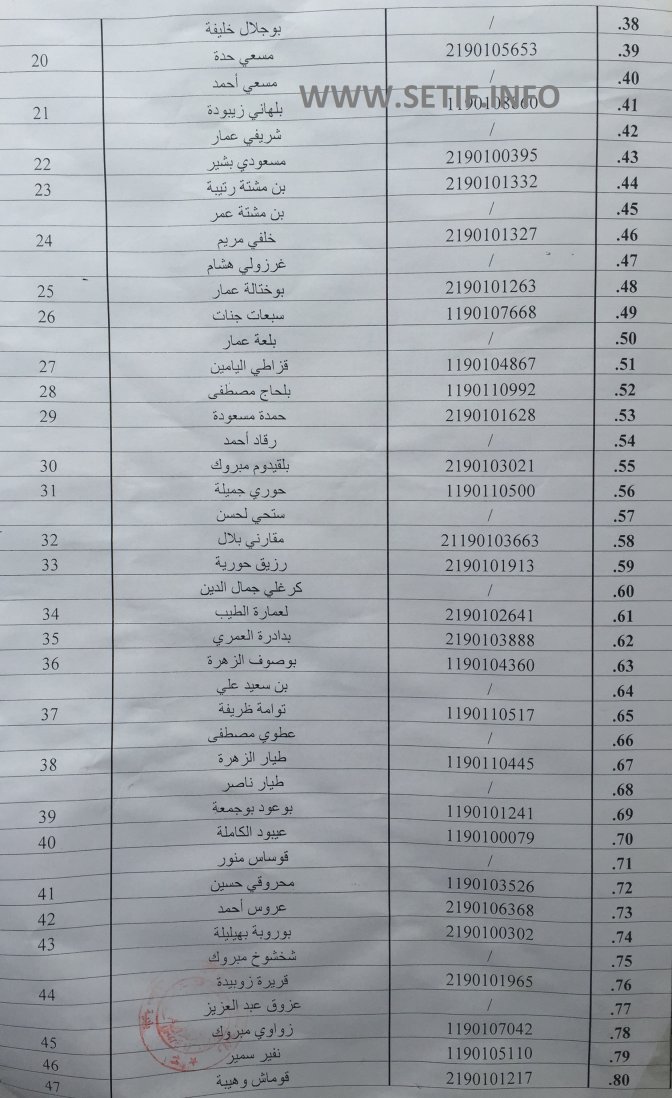 .38 / بوجلال خليفة
.39 2190105653 مسعي حدة 20
.40 / مسعي أحمد
WWW.SETIF.INFO
.41 1190108860 بلهاني زيبودة 21
.42 / شريفي عمار
.43 2190100395 مسعودي بشير 22
.44 2190101332 بن مشتة رتيبة 23
.45 / بن مشتة عمر
.46 2190101327 خلفي مريم 24
.47 / غرزولي هشام
.48 2190101263 بوختالة عمار 25
.49 1190107668 سبعات جنات 26
.50 / بلعة عمار
.51 1190104867 قزاطي اليامين 27
.52 1190110992 بلحاج مصطفى 28
.53 2190101628 حمدة مسعودة 29
.54 / رقاد أحمد
.55 2190103021 بلقيدوم مبروك 30
.56 1190110500 حوري جميلة 31
.57 / ستحي لحسن
.58 21190103663 مقارني بلال 32
.59 2190101913 رزيق حورية 33
.60 / كرغلي جمال الدين
.61 2190102641 لعمارة الطيب 34
.62 2190103888 بدادرة العمري 35
.63 1190104360 بوصوف الزهرة 36
.64 / بن سعيد علي
.65 1190110517 توامة ظريفة 37
.66 / عطوي مصطفى
.67 1190110445 طيار الزهرة 38
.68 / طيار ناصر
.69 1190101241 بوعود بوجمعة 39
.70 1190100079 عيبود الكاملة 40
.71 / قوساس منور
.72 1190103526 محروقي حسين 41
.73 2190106368 عروس أحمد 42
.74 2190100302 بوروبة بهيليلة 43
.75 / شخشوخ مبروك
.76 2190101965 قريرة زوبيدة 44
.77 / عزوق عبد العزيز
.78 1190107042 زواوي مبروك 45
.79 1190105110 نفير سمير 46
.80 2190101217 قوماش وهيبة 47